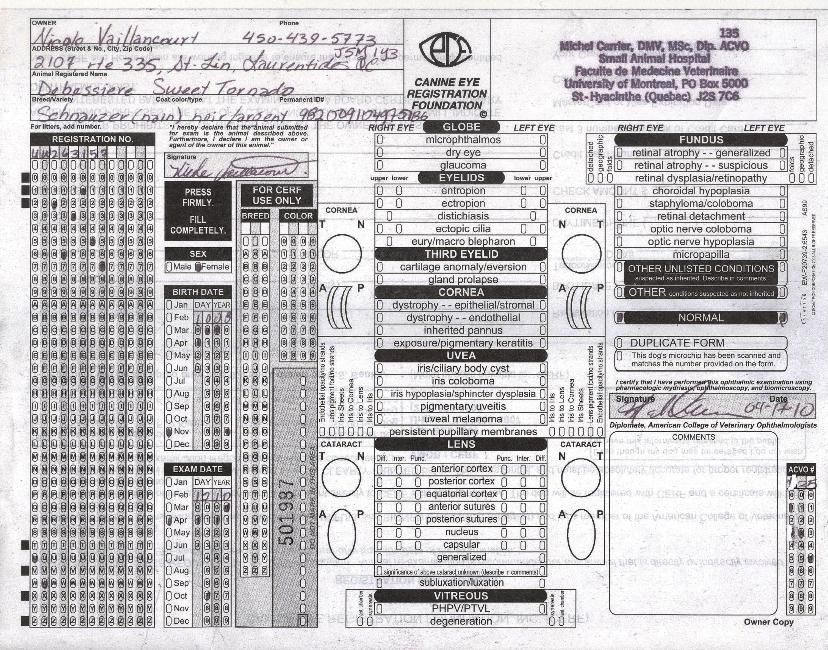 OWNER
Phone
Nicole Vaillancourt 450-439-5773
ADDRESS (Street & No., City, Zip Code)
J5M 1Y3
2107 rte 335, St-Lin Laurentides Qc
Animal Registered Name
Debassiere Sweet Tornado
Breed/Variety Coat color/type: Permanent ID#
Schnauzer (nain) noir/argent
CANINE EYE
REGISTRATION
FOUNDATION
135
Michel Carrier, DMV, MSc, Dip. ACVO
Small Animal Hospital
Faculte de Medecine Veterinaire
University of Montreal, PO Box 5000
St-Hyacinthe (Quebec) J2S 7C6
For litters, add number.
REGISTRATION NO.
"I hereby declare that the animal submitted
for exam is the animal described above.
Furthermore, I declare I am the owner or
agent of the owner of this animal."
Signature
PRESS
FIRMLY.
FILL
COMPLETELY.
FOR CERF
USE ONLY
BREED COLOR
SEX
Male Female
BIRTH DATE
DAY YEAR
Jan
Feb
Mar
Apr
May
Jun
Jul
Aug
Sep
Oct
Nov
Dec
EXAM DATE
DAY YEAR
Jan
Feb
Mar
Apr
May
Jun
Jul
Aug
Sep
Oct
Nov
Dec
501987
RIGHT EYE GLOBE LEFT EYE
microphthalmos
dry eye
glaucoma
upper lower EYELIDS upper lower
entropion
ectropion
distichiasis
ectopic cilia
eury/macro blepharon
THIRD EYELID
cartilage anomaly/eversion
gland prolapse
CORNEA
dystrophy - - epithelial/stromal
dystrophy - - endothelial
inherited pannus
exposure/pigmentary keratitis
UVEA
iris/ciliary body cyst
iris coloboma
iris hypoplasia/sphincter dysplasia
pigmentary uveitis
uveal melanoma
persistent pupillary membranes
LENS
Diff. Inter. Punc. Punc. Inter. Diff.
anterior cortex
posterior cortex
equatorial cortex
anterior sutures
posterior sutures
nucleus
capsular
generalized
significance of above cataract unknown (describe in comments)
subluxation/luxation
VITREOUS
PHPV/PTVL
degeneration
CORNEA
T N
A P
CATARACT
T N
A P
CORNEA
N T
A P
CATARACT
N T
A P
Iris Sheets
Iris to Cornea
Iris to Lens
Iris to Iris
Iris to Iris
Iris to Lens
Iris to Cornea
Iris Sheets
RIGHT EYE LEFT EYE
FUNDUS
detached
geographic
folds
folds
geographic
detached
retinal atrophy - - generalized
retinal atrophy - - suspicious
retinal dysplasia/retinopathy
choroidal hypoplasia
staphyloma/coloboma
retinal detachment
optic nerve coloboma
optic nerve hypoplasia
micropapilla
OTHER UNLISTED CONDITIONS
suspected as inherited. Describe in comments
OTHER conditions suspected as not inherited
NORMAL
DUPLICATE FORM
This dog's microchip has been scanned and
matches the number provided on the form.
I certify that I have performed this ophthalmic examination using
pharmacologic mydriasis, ophthalmoscopy, and biomicroscopy.
Signature Date
04-17-10
Diplomate, American College of Veterinary Ophthalmologists
COMMENTS
ACVO #
135
Owner Copy